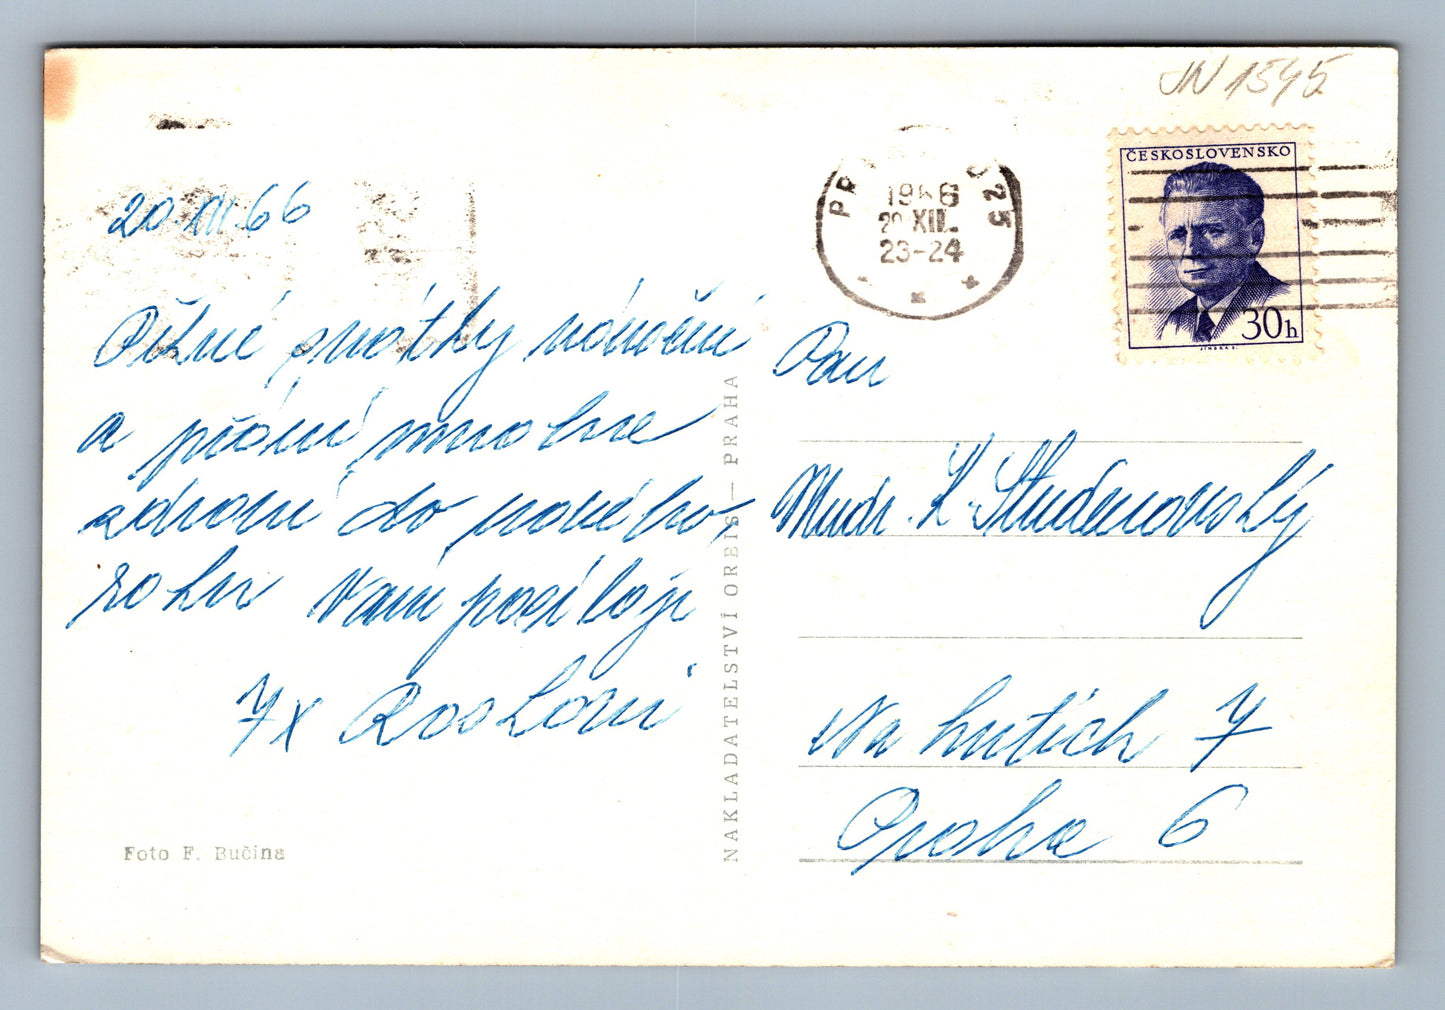 JN 1545
ČESKOSLOVENSKO
30h
1966
20.XII.
23-24
525
20.XII.66
Pěkné svátky vánoční
a přání mnoho
zdraví do nového
roku Vám posílají
7x
Pan
Mudr. K. Studenovský
Na hutích 7
Praha 6
NAKLADATELSTVÍ ORBIS — PRAHA
Foto F. Bučina